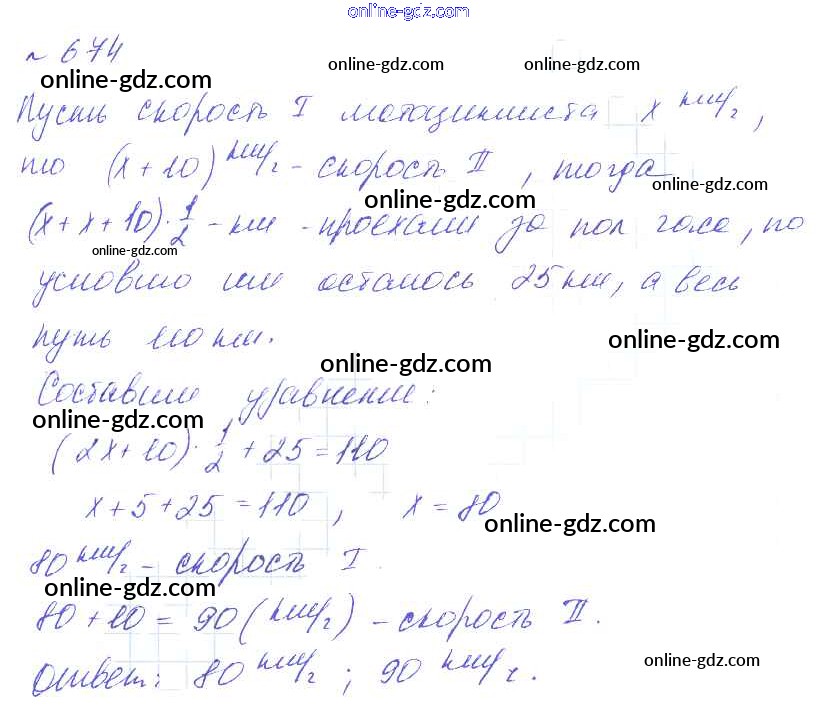 online-gdz.com
№ 674
online-gdz.com
online-gdz.com
Пусть скорость I мотоциклиста x км/г,
то (x + 10) км/г - скорость II, тогда
online-gdz.com
online-gdz.com
(x + x + 10) · 1/2 - км - проехали за пол часа, по
online-gdz.com
условию им осталось 25 км, а весь
путь 110 км.
online-gdz.com
online-gdz.com
Составим уравнение:
online-gdz.com
(2x + 10) · 1/2 + 25 = 110
x + 5 + 25 = 110, x = 80
online-gdz.com
80 км/г - скорость I.
online-gdz.com
80 + 10 = 90 (км/г) - скорость II.
Ответ: 80 км/г; 90 км/г.
online-gdz.com